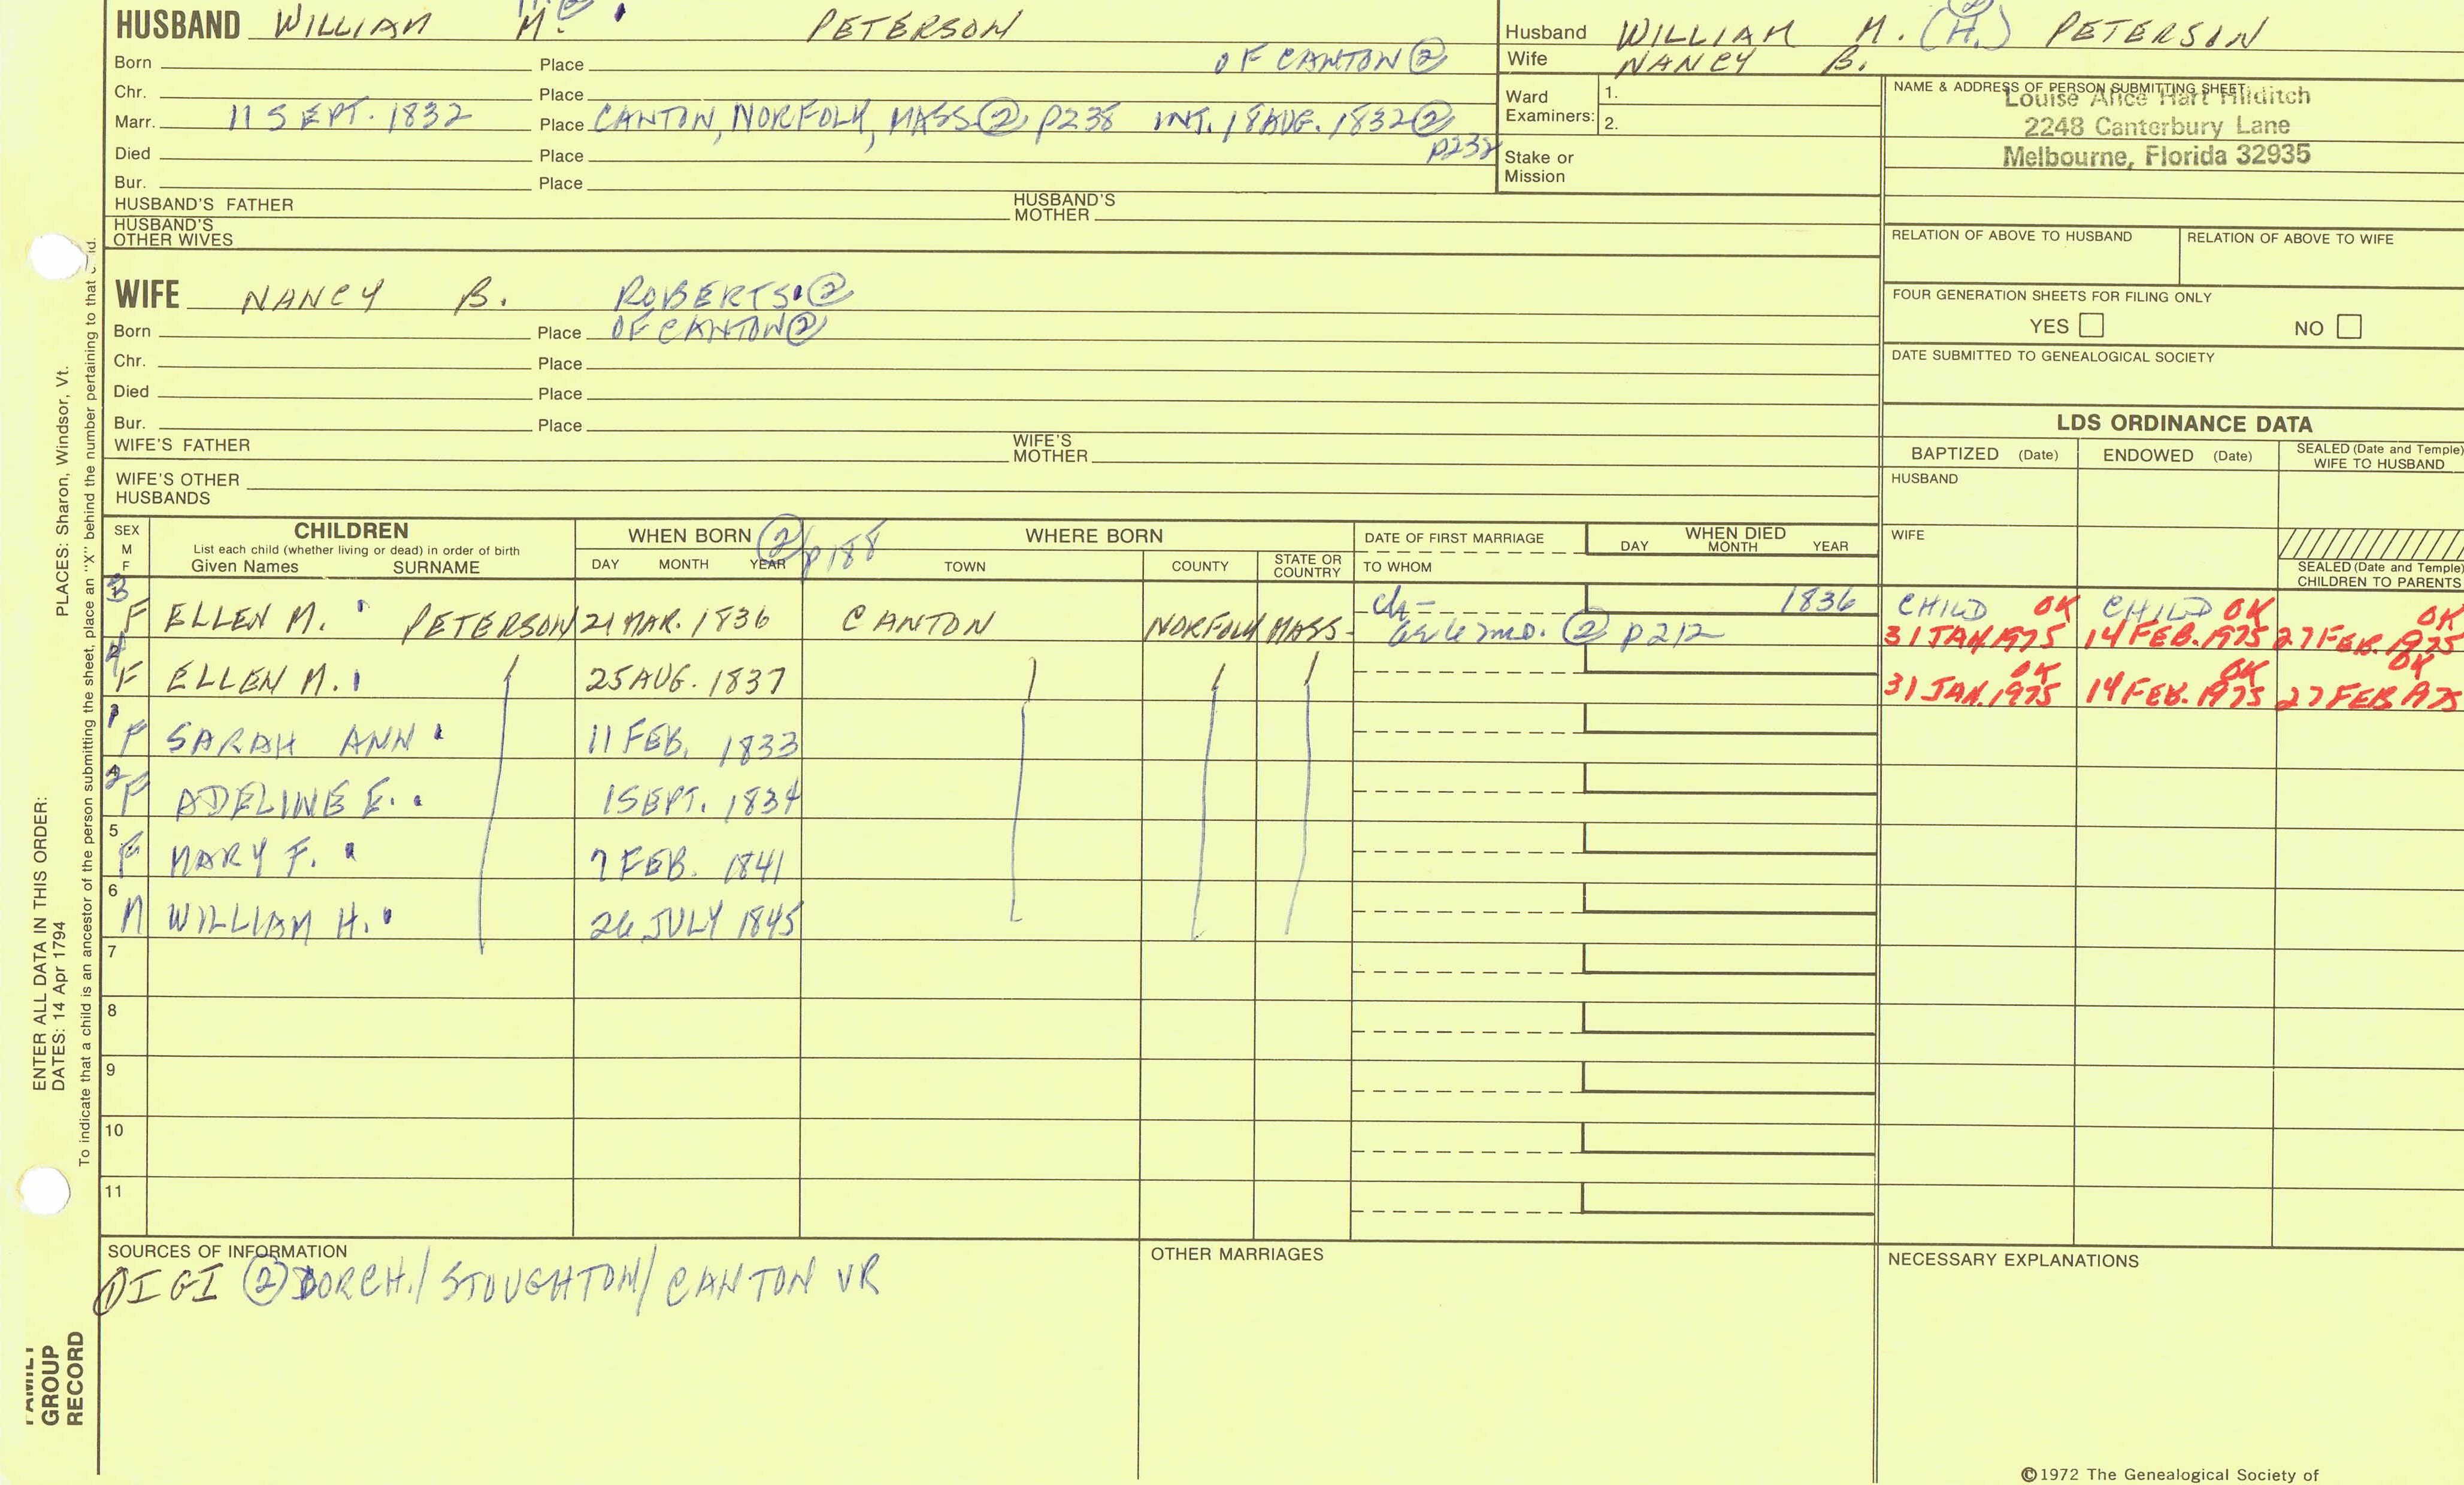 HUSBAND WILLIAM M. PETERSON
Born Place OF CANTON ②
Chr. Place
Marr. 11 SEPT. 1832 Place CANTON, NORFOLK, MASS ② P238 INT. 18 AUG. 1832 ② P232
Died Place
Bur. Place
HUSBAND'S FATHER HUSBAND'S MOTHER
HUSBAND'S OTHER WIVES
Husband WILLIAM M. (H.) PETERSON
Wife NANCY B.
Ward Examiners: 1.
2.
Stake or Mission
NAME & ADDRESS OF PERSON SUBMITTING SHEET
Louise Alice Hart Hilditch
2248 Canterbury Lane
Melbourne, Florida 32935
RELATION OF ABOVE TO HUSBAND RELATION OF ABOVE TO WIFE
FOUR GENERATION SHEETS FOR FILING ONLY
YES NO
DATE SUBMITTED TO GENEALOGICAL SOCIETY
WIFE NANCY B. ROBERTS ②
Born Place OF CANTON ②
Chr. Place
Died Place
Bur. Place
WIFE'S FATHER WIFE'S MOTHER
WIFE'S OTHER HUSBANDS
LDS ORDINANCE DATA
BAPTIZED (Date) ENDOWED (Date) SEALED (Date and Temple) WIFE TO HUSBAND
HUSBAND
WIFE
SEALED (Date and Temple) CHILDREN TO PARENTS
SEX M F
CHILDREN
List each child (whether living or dead) in order of birth
Given Names SURNAME
WHEN BORN ② p188
DAY MONTH YEAR
WHERE BORN
TOWN COUNTY STATE OR COUNTRY
DATE OF FIRST MARRIAGE
TO WHOM
WHEN DIED
DAY MONTH YEAR
3 F ELLEN M. PETERSON 21 MAR. 1836 CANTON NORFOLK MASS- ch- 6 mo. ② p212 1836 CHILD OK CHILD OK OK
31 JAN. 1975 14 FEB. 1975 27 FEB. 1975
F ELLEN M. 25 AUG. 1837 OK OK OK
31 JAN. 1975 14 FEB. 1975 27 FEB 1975
1 F SARAH ANN 11 FEB. 1833
2 F ADELINE E. 1 SEPT. 1834
5 F MARY F. 7 FEB. 1841
6 M WILLIAM H. 26 JULY 1845
7
8
9
10
11
SOURCES OF INFORMATION
① IGI ② DORCH./STOUGHTON/CANTON VR
OTHER MARRIAGES
NECESSARY EXPLANATIONS
©1972 The Genealogical Society of
ENTER ALL DATA IN THIS ORDER:
DATES: 14 Apr 1794 PLACES: Sharon, Windsor, Vt.
To indicate that a child is an ancestor of the person submitting the sheet, place an "X" behind the number pertaining to that child.
FAMILY GROUP RECORD